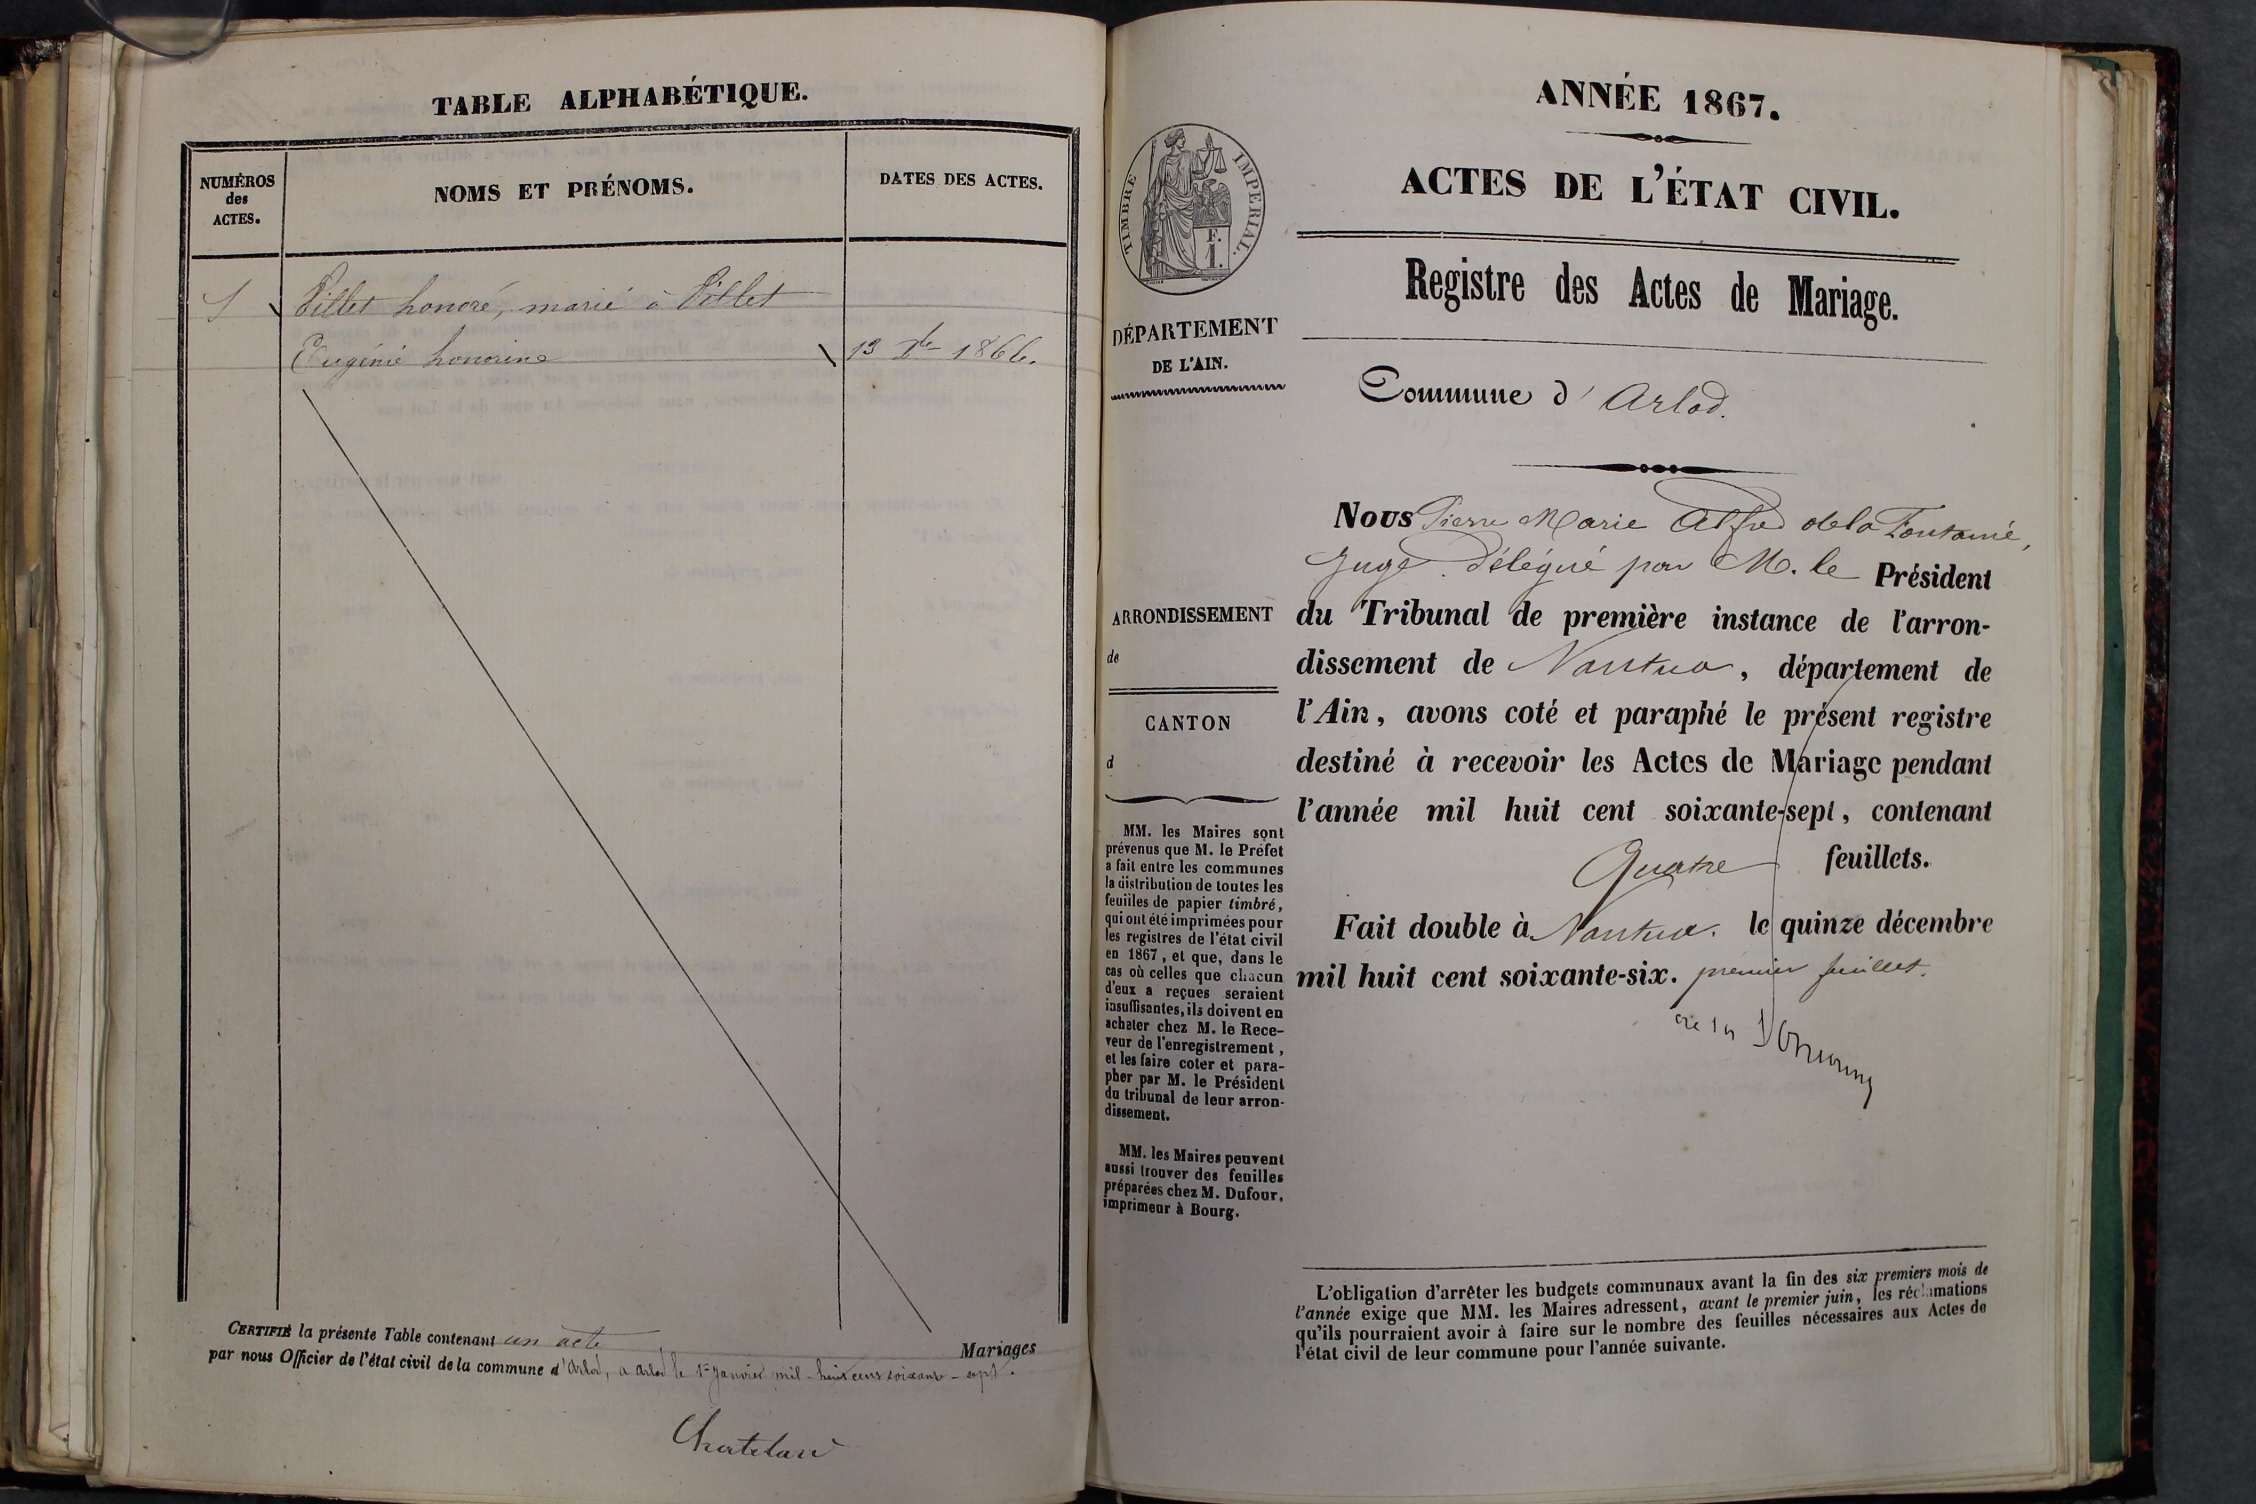 TABLE ALPHABÉTIQUE.
NUMÉROS
des
ACTES.
NOMS ET PRÉNOMS.
DATES DES ACTES.
1
Pillet honoré, marié à Pillet
Eugénie honorine
13 Xbre 1866.
CERTIFIÉ la présente Table contenant un acte
Mariages
par nous Officier de l'état civil de la commune d'Arlod, a arlod le 1er Janvier mil-huit cent soixante-sept.
Chatelain
ANNÉE 1867.
ACTES DE L'ÉTAT CIVIL.
Registre des Actes de Mariage.
TIMBRE IMPÉRIAL.
F.
1.
DÉPARTEMENT
DE L'AIN.
Commune d'Arlod.
Nous Pierre Marie Alfred de la Fontaine,
Juge délégué par M. le Président
ARRONDISSEMENT
de
du Tribunal de première instance de l'arron-
dissement de Nantua, département de
CANTON
d
l'Ain, avons coté et paraphé le présent registre
destiné à recevoir les Actes de Mariage pendant
l'année mil huit cent soixante-sept, contenant
Quatre feuillets.
Fait double à Nantua. le quinze décembre
mil huit cent soixante-six. premier feuillet.
MM. les Maires sont
prévenus que M. le Préfet
a fait entre les communes
la distribution de toutes les
feuilles de papier timbré,
qui ont été imprimées pour
les registres de l'état civil
en 1867, et que, dans le
cas où celles que chacun
d'eux a reçues seraient
insuffisantes, ils doivent en
acheter chez M. le Rece-
veur de l'enregistrement,
et les faire coter et para-
pher par M. le Président
du tribunal de leur arron-
dissement.
MM. les Maires peuvent
aussi trouver des feuilles
préparées chez M. Dufour,
imprimeur à Bourg.
L'obligation d'arrêter les budgets communaux avant la fin des six premiers mois de
l'année exige que MM. les Maires adressent, avant le premier juin, les réclamations
qu'ils pourraient avoir à faire sur le nombre des feuilles nécessaires aux Actes de
l'état civil de leur commune pour l'année suivante.